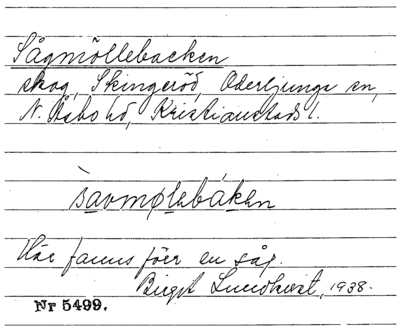 Sågmöllebacken
skog, Skingeröd, Oderljunga sn,
N. Åsbo hd, Kristianstads l.
sàvmølebáken
Här fanns förr en såg.
Birgit Lundkvist, 1938.
Nr 5499.